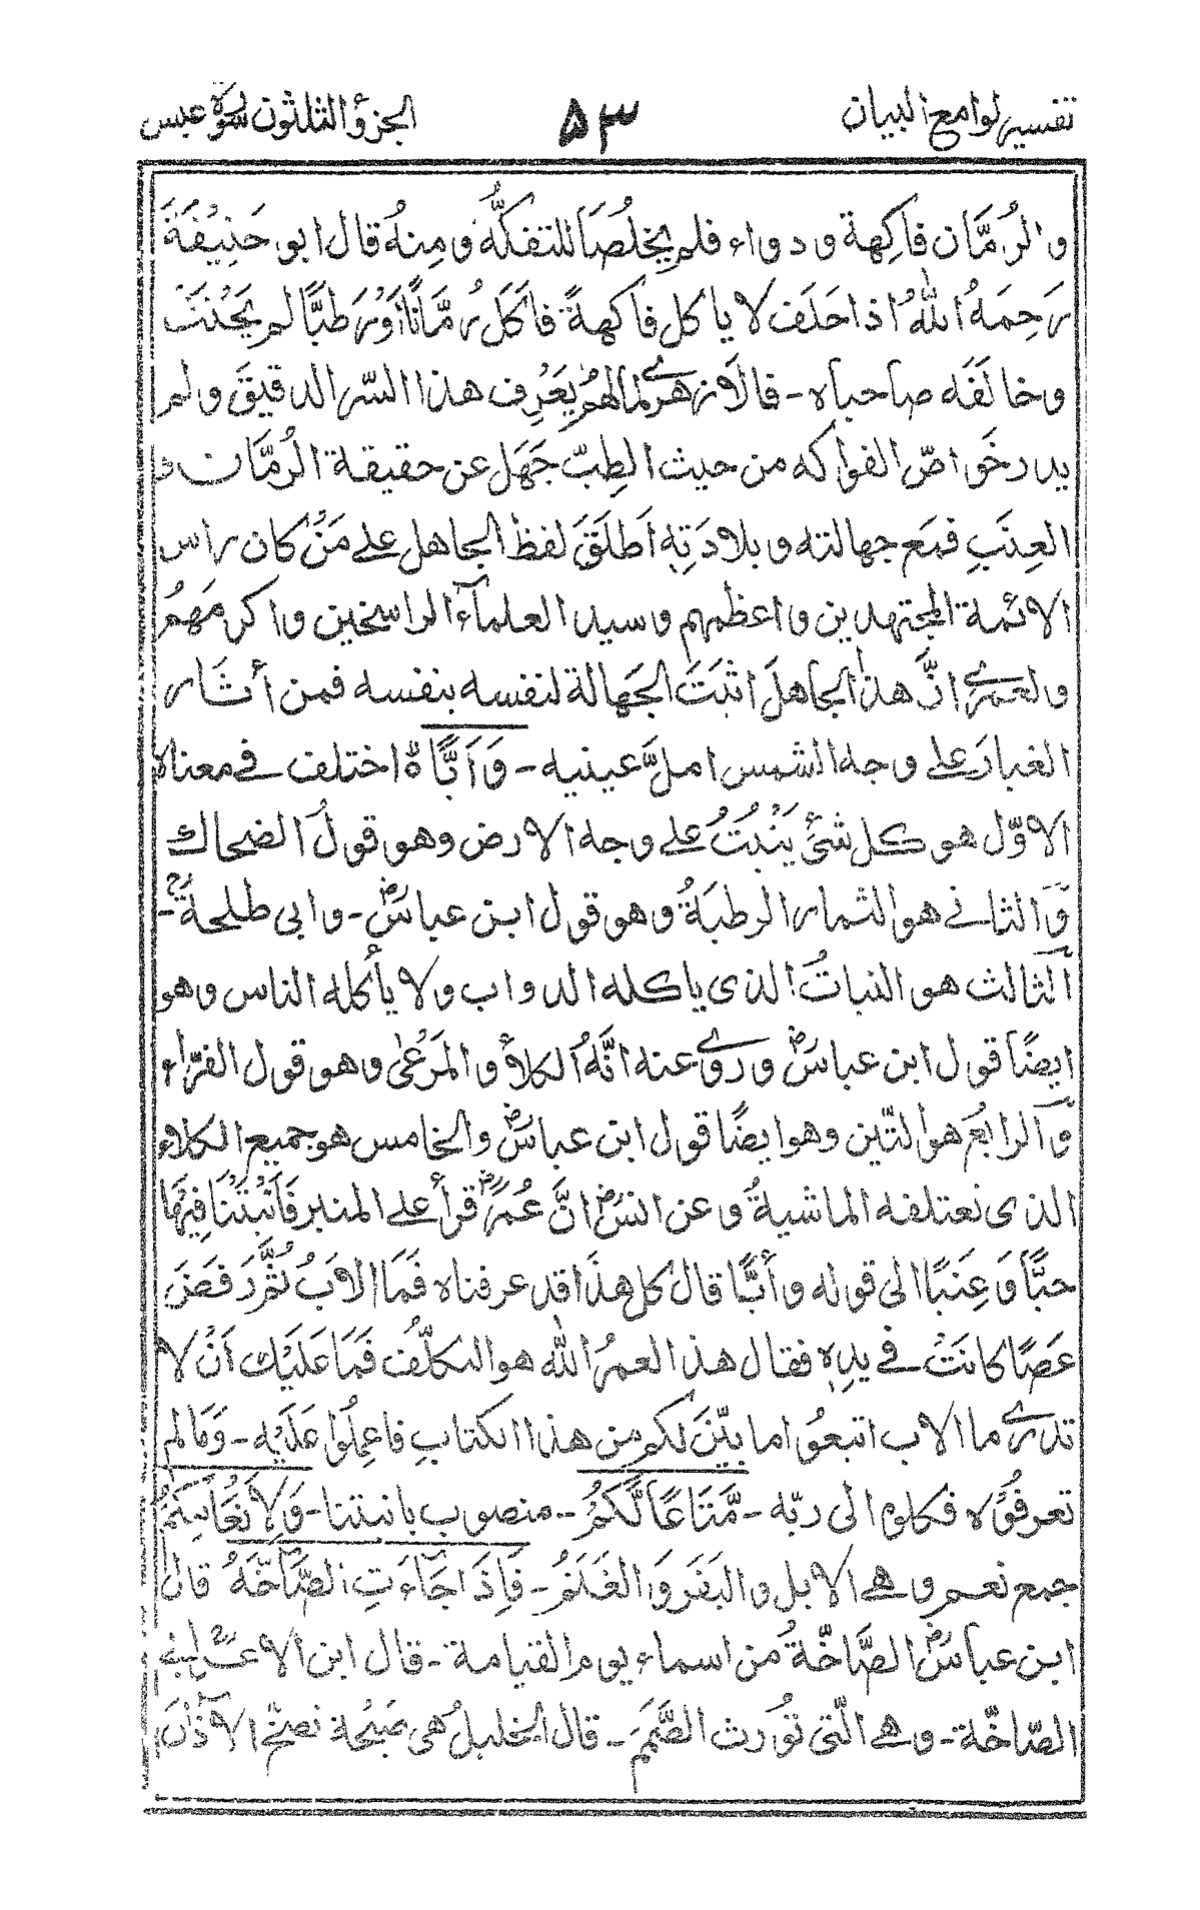 تفسير لوامع البيان ٥٣ الجزؤ الثلثون سورة عبس
والرُمَّان فاكِهة ودواء فلم يخلُصَا للتفكُّه ومِنهُ قال ابو حَنِيْفَةَ
رَحِمَهُ اللهُ اذا حَلَفَ لا ياكل فاكهةً فاَكَلَ رُمَّانًا اَوْ رَطبًا لم يَحْنَثْ
وخالَفَه صاحباه - قال الازهرى لمالهم يَعْرِف هذا السّر الدقيقَ ولم
يدر خَواصّ الفواكه من حيث الطِبّ جَهَل عن حقيقة الرُمَّان و
العِنَبِ فمَع جهالته وبلادَتِه اَطلَقَ لفظ الجاهل على مَنْ كان راس
الائمة المجتهدين واعظمهم وسيد العلماء الراسخين واكرمَهمُ
ولعمرى انَّ هذا الجاهلَ اثبَتَ الجَهالة لنفسه بنفسه فمن أثار
الغبارَ على وجه الشمس املَّ عينيه - وَاَبًّا ە اختلف فى معناه
الاوّل هو كل شئ يَنْبُتُ على وجه الارض وهو قول الضحاك
وَالثانى هو الثمار الرطبَةُ وهو قول ابن عباسؓ - وابى طلحةؓ -
الثالث هو النباتُ الذى ياكله الدواب ولا يأكله الناس وهو
ايضًا قول ابن عباسؓ وروى عنه انَّهُ الكلأ والمَرْعٰى وهو قول الفرّاء
وَالرابعُ هو التّين وهو ايضًا قول ابن عباسؓ والخامس هو جميع الكلاء
الذى تعتلفه الماشيةُ وعن انسؓ انَّ عُمَرؓ قرأ على المنبر فَاَنْبَتْنَا فِيْهَا
حَبًّا وَعِنَبًا الى قوله وأبًّا قال كل هذَا قد عرفناه فَمَا الابُ ثُمَّ رَفَضَ
عَصًا كانَتْ فى يدِه فقال هذا لعمرُ الله هو التكلّف فَمَا عَلَيْك اَنْ لا
تدرى ما الاب اتبعُوا ما بيّنَ لكم من هذا الكتابِ فاعمِلُوا عَلَيْه - وَمَالم
تعرفوُه فكلوه الى ربّه - مَّتَاعًا لَّكُمْ - منصوب بانبتنا - وَلِاَنْعَامِكُمْ
جمع نعم وهى الابل والبَقَر وَالغَنَمُ - فَاِذَا جَاءَتِ الصَّاخَّةُ قال
ابن عباسؓ الصَّاخّةُ من اسماء يوم القيامة - قال ابن الاعرابى
الصّاخّة - وهى الّتى تُورث الصَّمَمَ - قال الخليلُ هى صَيْحة تصخّ الاٰذانَ